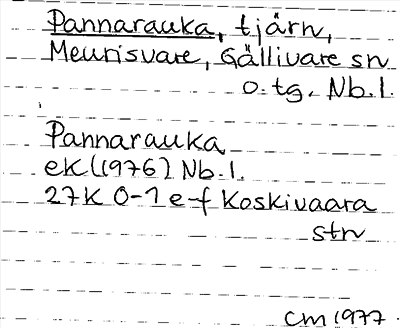 Pannarauka, tjärn,
Meurisvare, Gällivare sn
o. tg. Nb. l.
Pannarauka
ek (1976) Nb. l.
27K 0-1 e-f Koskivaara
stn
CM 1977.